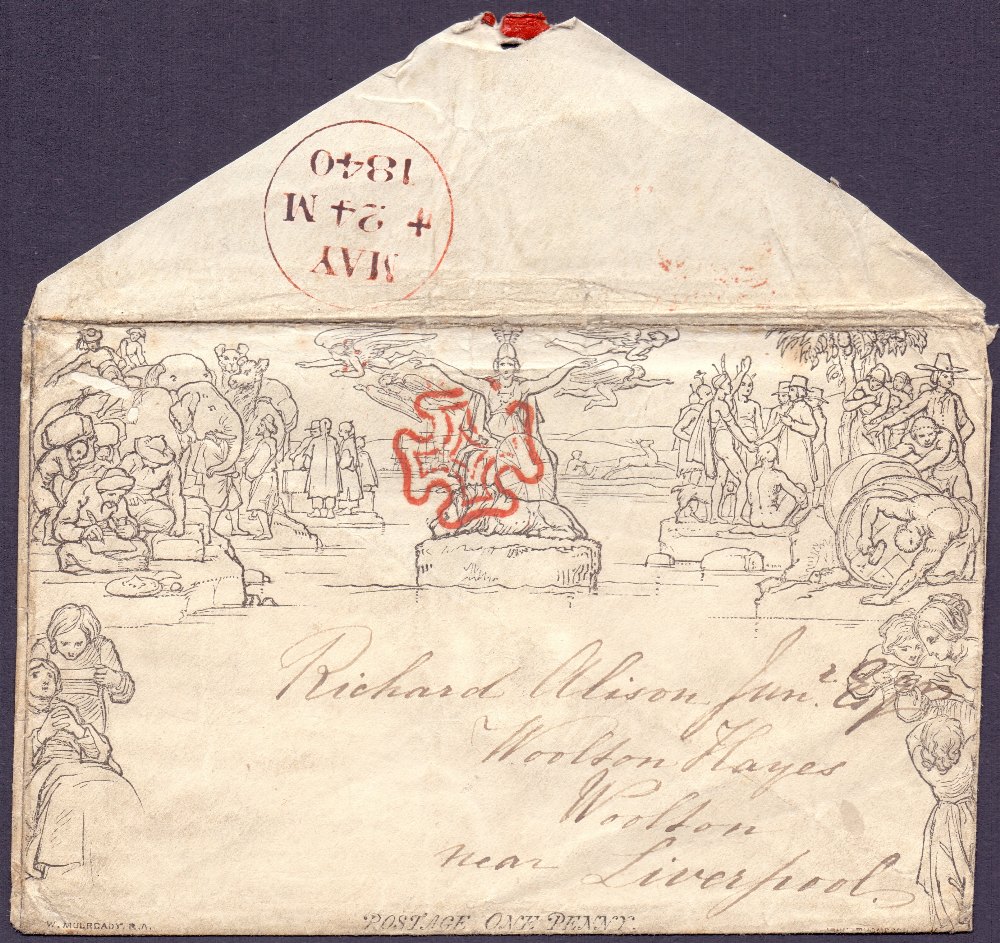 MAY
+ 24 M
1840
Richard Alison Junr. Esqr
Woolton Hayes
Woolton
near Liverpool.
W. MULREADY. R.A.
POSTAGE ONE PENNY.